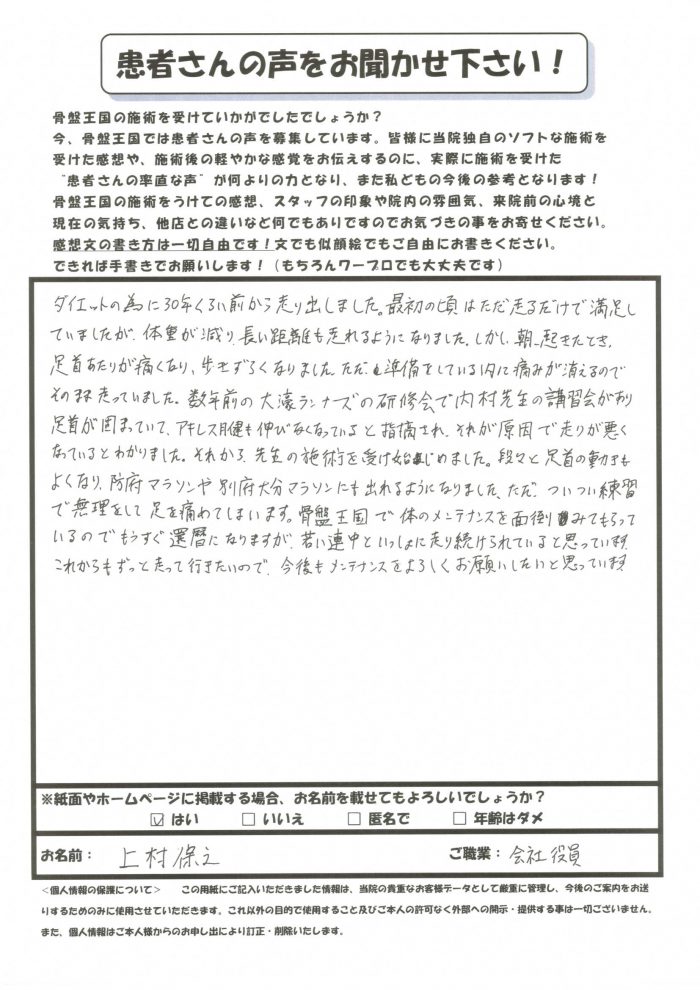 患者さんの声をお聞かせ下さい！
骨盤王国の施術を受けていかがでしたでしょうか？
今、骨盤王国では患者さんの声を募集しています。皆様に当院独自のソフトな施術を
受けた感想や、施術後の軽やかな感覚をお伝えするのに、実際に施術を受けた
"患者さんの率直な声"が何よりの力となり、また私どもの今後の参考となります！
骨盤王国の施術をうけての感想、スタッフの印象や院内の雰囲気、来院前の心境と
現在の気持ち、他店との違いなど何でもありですのでお気づきの事をお寄せください。
感想文の書き方は一切自由です！文でも似顔絵でもご自由にお書きください。
できれば手書きでお願いします！（もちろんワープロでも大丈夫です）
ダイエットの為に30年くらい前から走り出しました。最初の頃はただ走るだけで満足し
ていましたが、体重が減り、長い距離も走れるようになりました。しかし、朝、起きたとき、
足首あたりが痛くなり、歩きずらくなりました。ただ、準備をしている内に痛みが消えるので
そのまま走っていました。数年前の大濠ランナーズの研修会で内村先生の講習会があり
足首が固まっていて、アキレス腱も伸びなくなっていると指摘され、それが原因で走りが悪く
なっているとわかりました。それから、先生の施術を受け始じめました。段々と足首の動きも
よくなり、防府マラソンや別府大分マラソンにも出れるようになりました。ただ、ついつい練習
で無理をして足を痛めてしまいます。骨盤王国で体のメンテナンスを面倒みてもらって
いるのでもうすぐ還暦になりますが、若い連中といっしょに走り続けられていると思っています。
これからもずっと走って行きたいので、今後もメンテナンスをよろしくお願いしたいと思っています
※紙面やホームページに掲載する場合、お名前を載せてもよろしいでしょうか？
☑ はい □ いいえ □ 匿名で □ 年齢はダメ
お名前： 上村保之 ご職業： 会社役員
＜個人情報の保護について＞ この用紙にご記入いただきました情報は、当院の貴重なお客様データとして厳重に管理し、今後のご案内をお送
りするためのみに使用させていただきます。これ以外の目的で使用すること及びご本人の許可なく外部への開示・提供する事は一切ございません。
また、個人情報はご本人様からのお申し出により訂正・削除いたします。